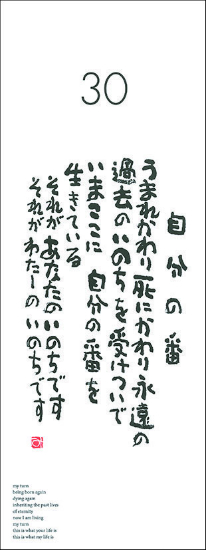 30
自分の番
うまれかわり死にかわり永遠の
過去のいのちを受けついで
いまここに 自分の番を
生きている
それがあなたのいのちです
それがわたしのいのちです
my turn
being born again
dying again
inheriting the past lives
of eternity
now I am living
my turn
this is what your life is
this is what my life is